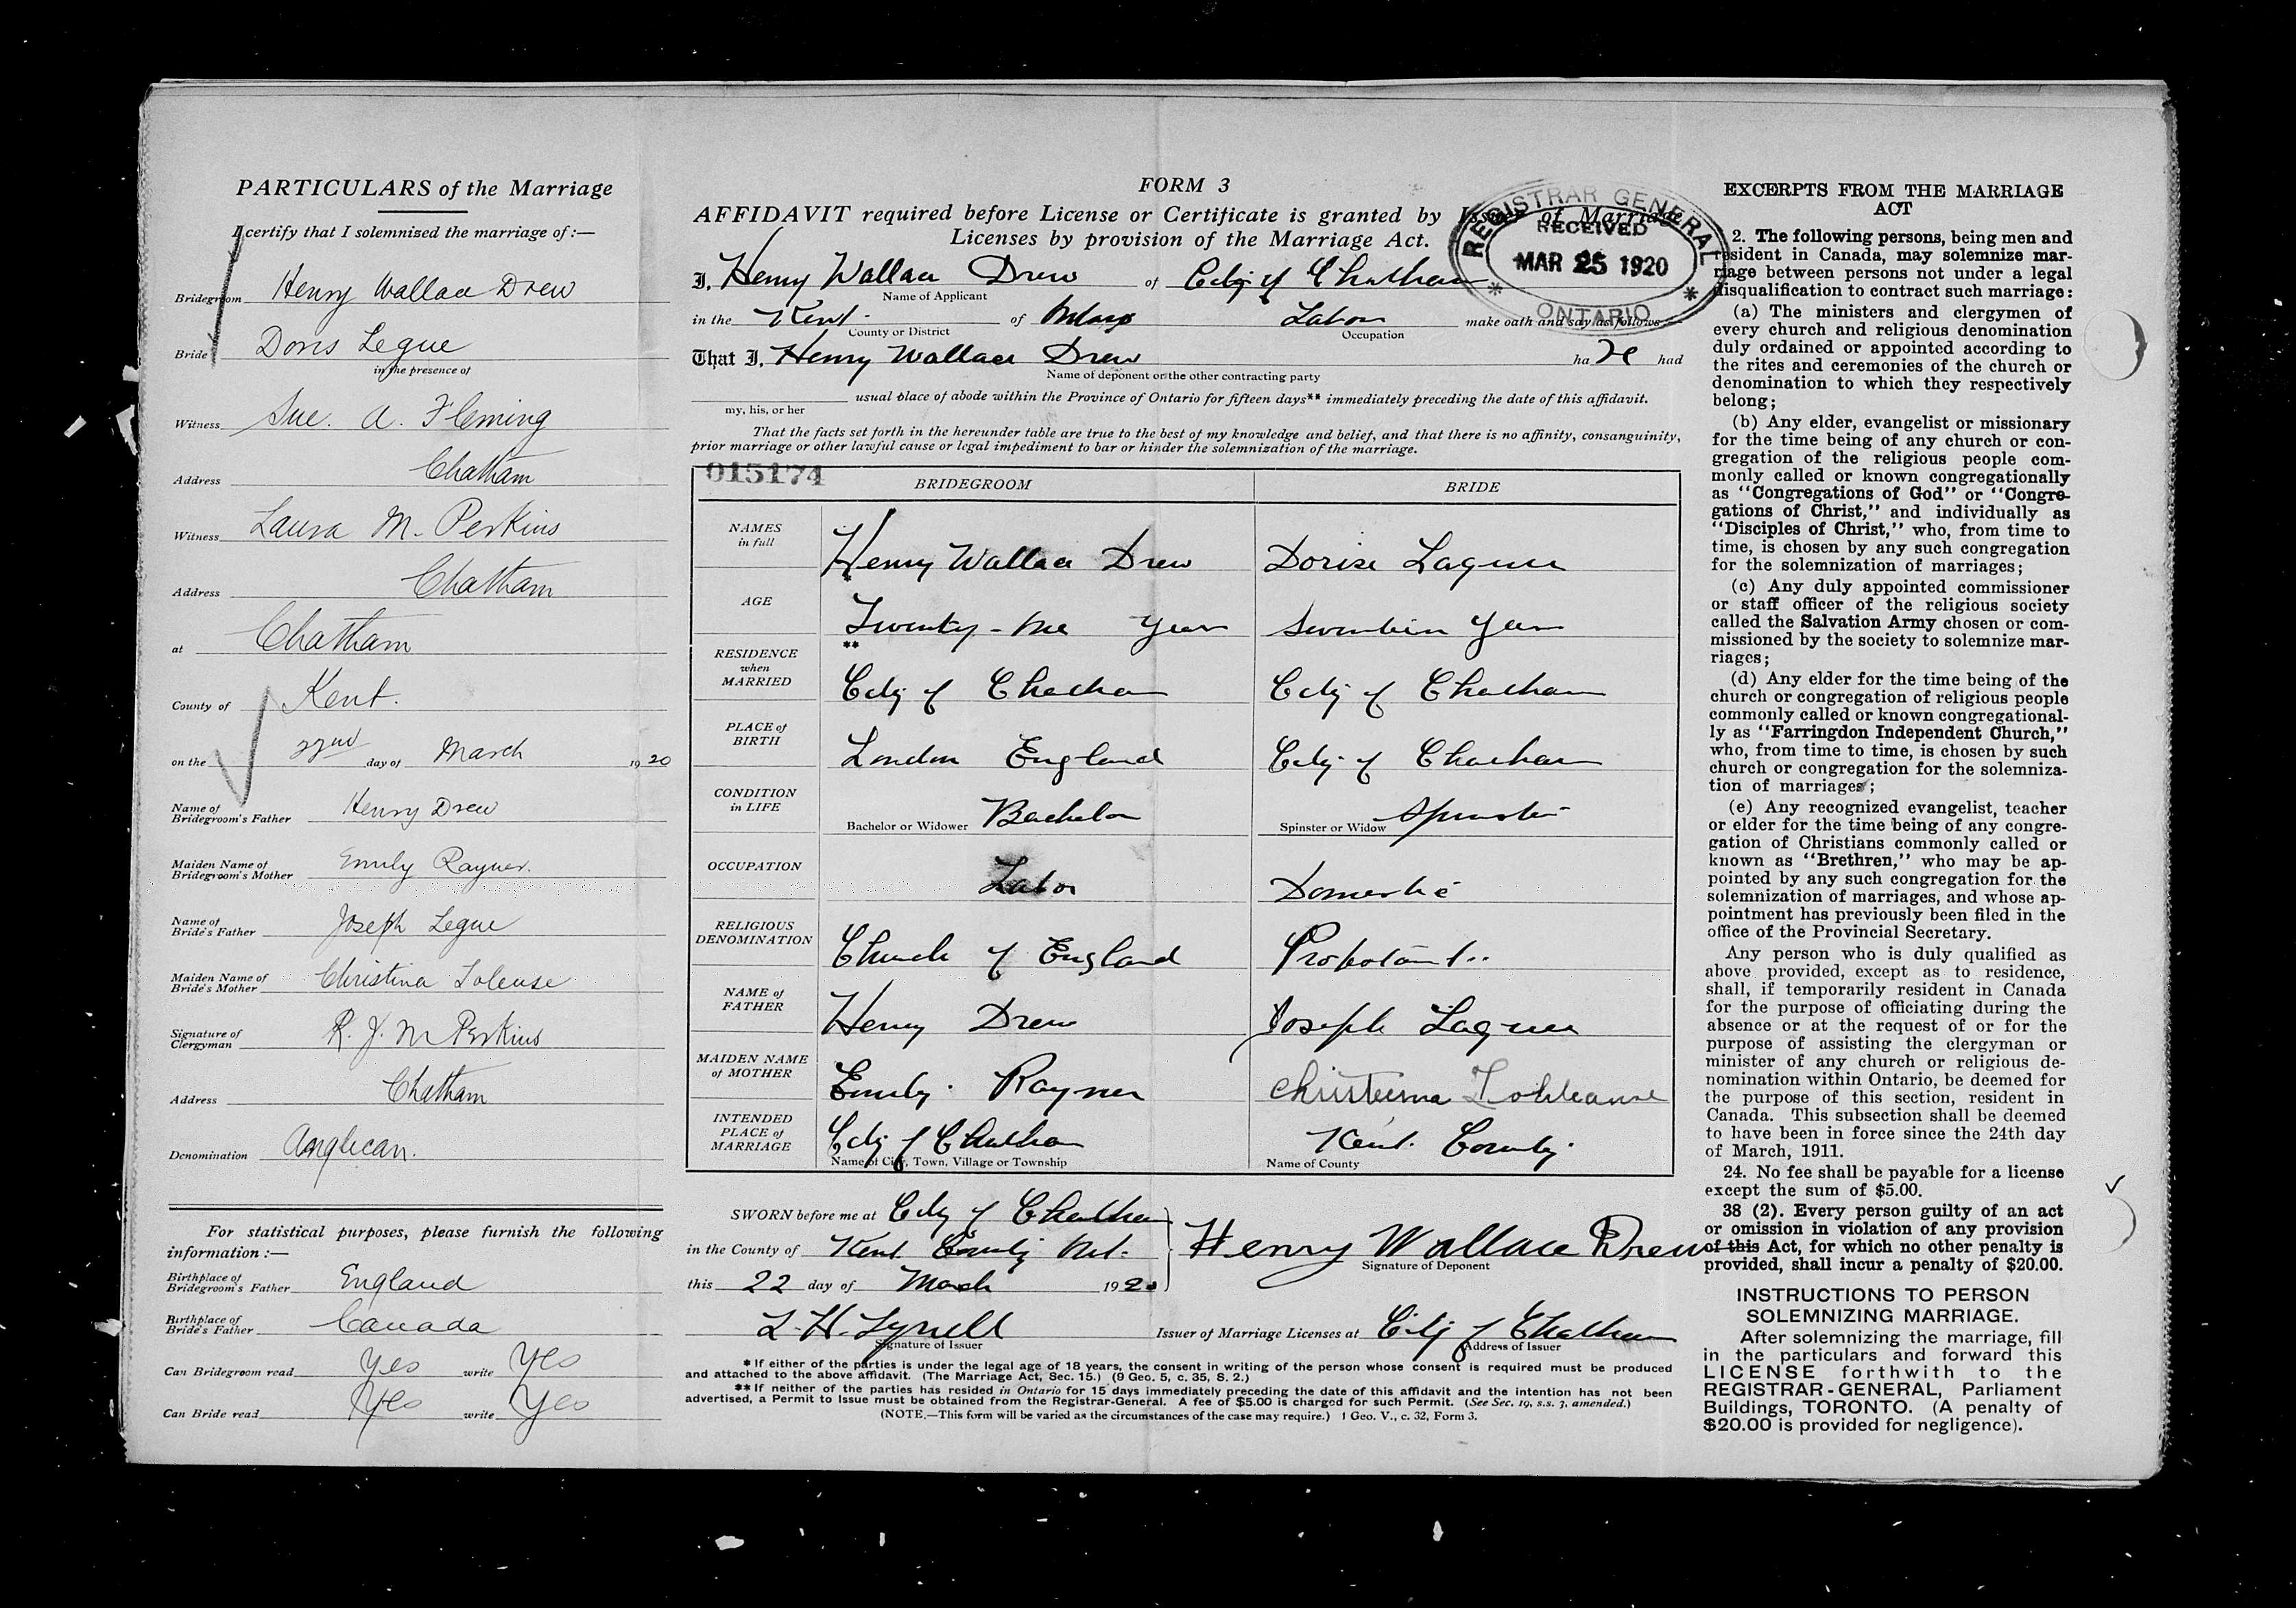 PARTICULARS of the Marriage
I certify that I solemnized the marriage of:—
Bridegroom Henry Wallace Drew
Bride Doris Legue
in the presence of
Witness Sue. A. Fleming
Address Chatham
Witness Laura M. Perkins
Address Chatham
at Chatham
County of Kent.
on the 22nd day of March 1920
Name of
Bridegroom's Father Henry Drew
Maiden Name of
Bridegroom's Mother Emily Rayner.
Name of
Bride's Father Joseph Legue
Maiden Name of
Bride's Mother Christina
Signature of
Clergyman R. J. M Perkins
Address Chatham
Denomination Anglican.
For statistical purposes, please furnish the following
information :—
Birthplace of
Bridegroom's Father England
Birthplace of
Bride's Father Canada
Can Bridegroom read Yes write Yes
Can Bride read Yes write Yes
FORM 3
AFFIDAVIT required before License or Certificate is granted by Issuer of Marriage
Licenses by provision of the Marriage Act.
REGISTRAR GENERAL
RECEIVED
MAR 25 1920
ONTARIO
I, Henry Wallace Drew of City of Chatham
Name of Applicant
in the Kent of Labor make oath and say as follows:—
County or District Occupation
That I, Henry Wallace Drew ha had
Name of deponent or the other contracting party
usual place of abode within the Province of Ontario for fifteen days** immediately preceding the date of this affidavit.
my, his, or her
That the facts set forth in the hereunder table are true to the best of my knowledge and belief, and that there is no affinity, consanguinity,
prior marriage or other lawful cause or legal impediment to bar or hinder the solemnization of the marriage.
015174
BRIDEGROOM BRIDE
NAMES
in full Henry Wallace Drew Dorise Lague
*
AGE Twenty-One Years Seventeen Years
**
RESIDENCE
when
MARRIED City of Chatham City of Chatham
PLACE of
BIRTH London England City of Chatham
CONDITION
in LIFE
Bachelor or Widower Bachelor Spinster or Widow Spinster
OCCUPATION Labor Domestic
RELIGIOUS
DENOMINATION Church of England Protestant..
NAME of
FATHER Henry Drew Joseph Lague
MAIDEN NAME
of MOTHER Emily Rayner
INTENDED
PLACE of
MARRIAGE City of Chatham Kent County
Name of City, Town, Village or Township Name of County
SWORN before me at City of Chatham
in the County of Kent County Ont.
this 22 day of March 1920
Henry Wallace Drew
Signature of Deponent
Issuer of Marriage Licenses at City of Chatham
Signature of Issuer Address of Issuer
* If either of the parties is under the legal age of 18 years, the consent in writing of the person whose consent is required must be produced
and attached to the above affidavit. (The Marriage Act, Sec. 15.) (9 Geo. 5, c. 35, S. 2.)
** If neither of the parties has resided in Ontario for 15 days immediately preceding the date of this affidavit and the intention has not been
advertised, a Permit to Issue must be obtained from the Registrar-General. A fee of $5.00 is charged for such Permit. (See Sec. 19, s.s. 3, amended.)
(NOTE.—This form will be varied as the circumstances of the case may require.) 1 Geo. V., c. 32, Form 3.
EXCERPTS FROM THE MARRIAGE
ACT
2. The following persons, being men and
resident in Canada, may solemnize mar-
riage between persons not under a legal
disqualification to contract such marriage:
(a) The ministers and clergymen of
every church and religious denomination
duly ordained or appointed according to
the rites and ceremonies of the church or
denomination to which they respectively
belong;
(b) Any elder, evangelist or missionary
for the time being of any church or con-
gregation of the religious people com-
monly called or known congregationally
as "Congregations of God" or "Congre-
gations of Christ," and individually as
"Disciples of Christ," who, from time to
time, is chosen by any such congregation
for the solemnization of marriages;
(c) Any duly appointed commissioner
or staff officer of the religious society
called the Salvation Army chosen or com-
missioned by the society to solemnize mar-
riages;
(d) Any elder for the time being of the
church or congregation of religious people
commonly called or known congregational-
ly as "Farringdon Independent Church,"
who, from time to time, is chosen by such
church or congregation for the solemniza-
tion of marriages;
(e) Any recognized evangelist, teacher
or elder for the time being of any congre-
gation of Christians commonly called or
known as "Brethren," who may be ap-
pointed by any such congregation for the
solemnization of marriages, and whose ap-
pointment has previously been filed in the
office of the Provincial Secretary.
Any person who is duly qualified as
above provided, except as to residence,
shall, if temporarily resident in Canada
for the purpose of officiating during the
absence or at the request of or for the
purpose of assisting the clergyman or
minister of any church or religious de-
nomination within Ontario, be deemed for
the purpose of this section, resident in
Canada. This subsection shall be deemed
to have been in force since the 24th day
of March, 1911.
24. No fee shall be payable for a license
except the sum of $5.00.
38 (2). Every person guilty of an act
or omission in violation of any provision
of this Act, for which no other penalty is
provided, shall incur a penalty of $20.00.
INSTRUCTIONS TO PERSON
SOLEMNIZING MARRIAGE.
After solemnizing the marriage, fill
in the particulars and forward this
LICENSE forthwith to the
REGISTRAR-GENERAL, Parliament
Buildings, TORONTO. (A penalty of
$20.00 is provided for negligence).